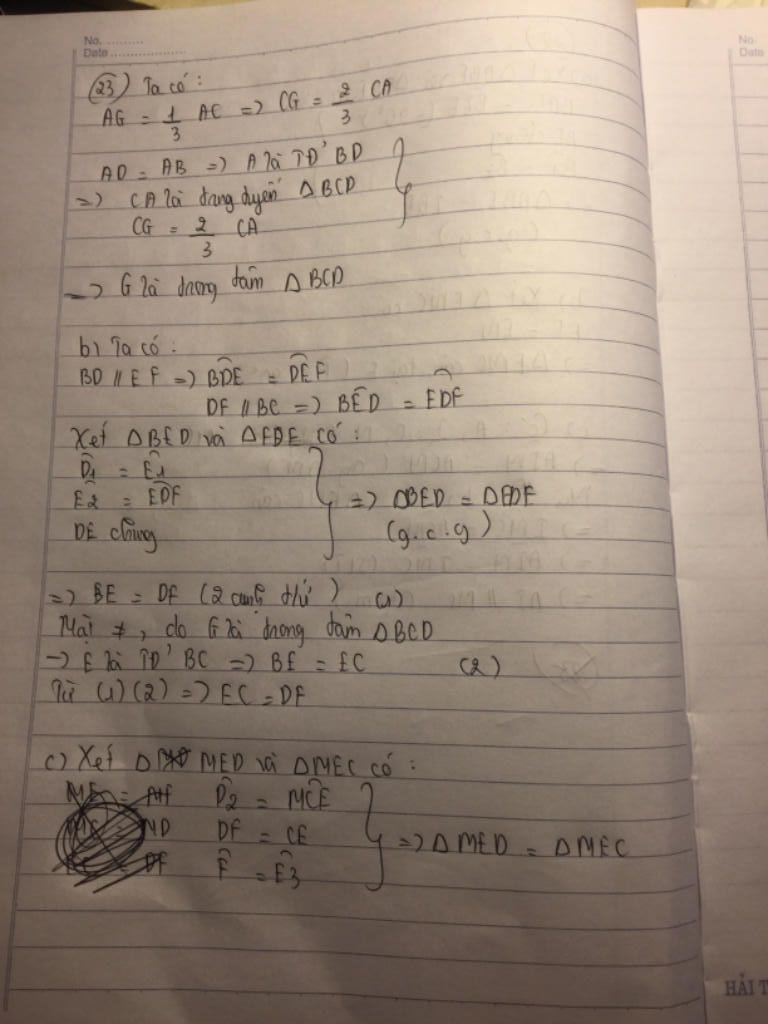 No. ..........
Date ....................
(23) Ta có :
AG = 1/3 AC => CG = 2/3 CA
AD = AB => A là TĐ' BD
=> CA là trung tuyến ΔBCD
CG = 2/3 CA
=> G là trọng tâm ΔBCD
b) Ta có :
BD // EF => BDE = DEF
DF // BC => BED = EDF
Xét ΔBED và ΔFDE có :
D1 = E1
E2 = EDF
DE chung
=> ΔBED = ΔFDE
(g.c.g)
=> BE = DF (2 cạnh t/ứ) (1)
Mặt ≠, do G là trọng tâm ΔBCD
-> E là TĐ' BC => BE = EC (2)
Từ (1) (2) => EC = DF
c) Xét Δ MED và ΔMEC có :
D2 = MCE
DF = CE
F = E3
=> ΔMED = ΔMEC
No.
Date
HẢI T